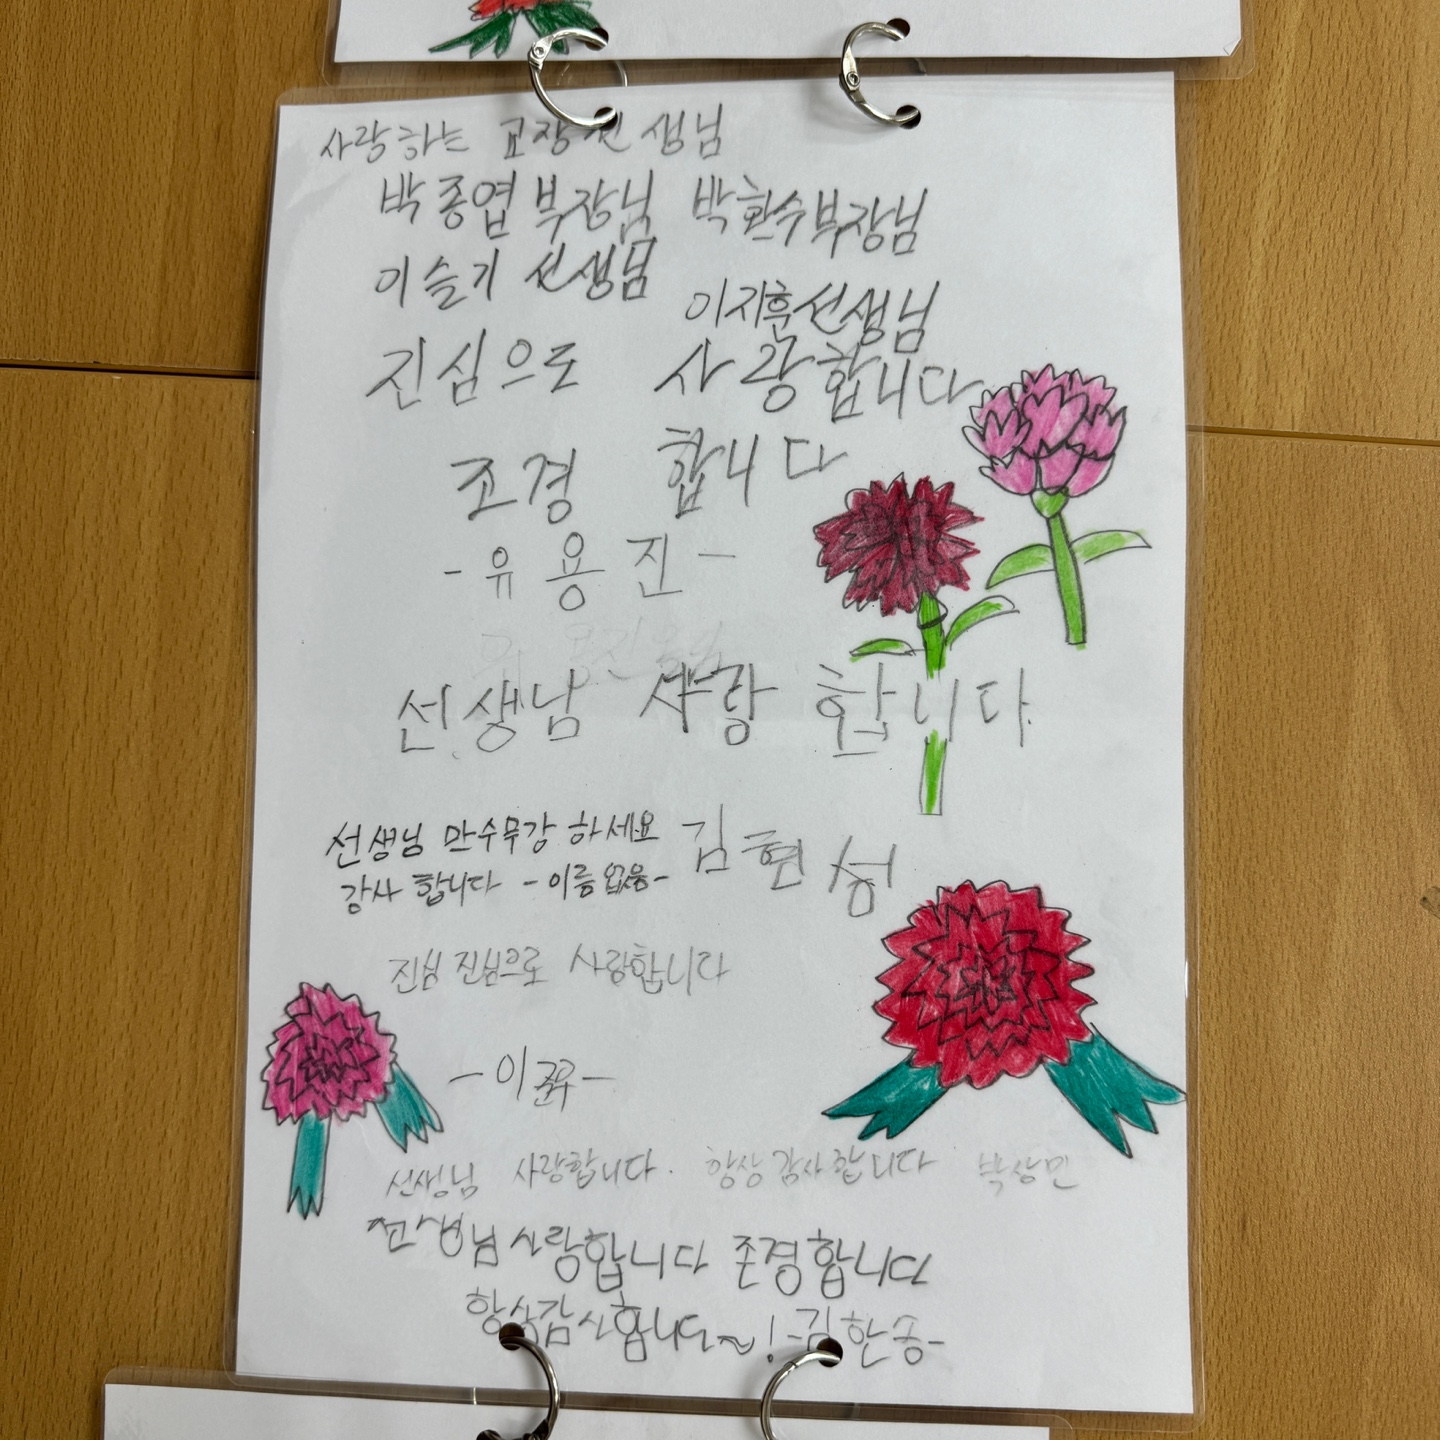 사랑하는 교장선생님
박종엽부장님 박환수부장님
이슬기 선생님
이지훈선생님
진심으로 사랑합니다
조경 합니다
-유용진-
선생님 사랑 합니다.
선생님 만수무강 하세요
감사 합니다 -이름없음-
김현성
진심 진심으로 사랑합니다
-이준우-
선생님 사랑합니다. 항상 감사합니다 박상민
선생님 사랑합니다 존경합니다
항상감사합니다~! -김한송-